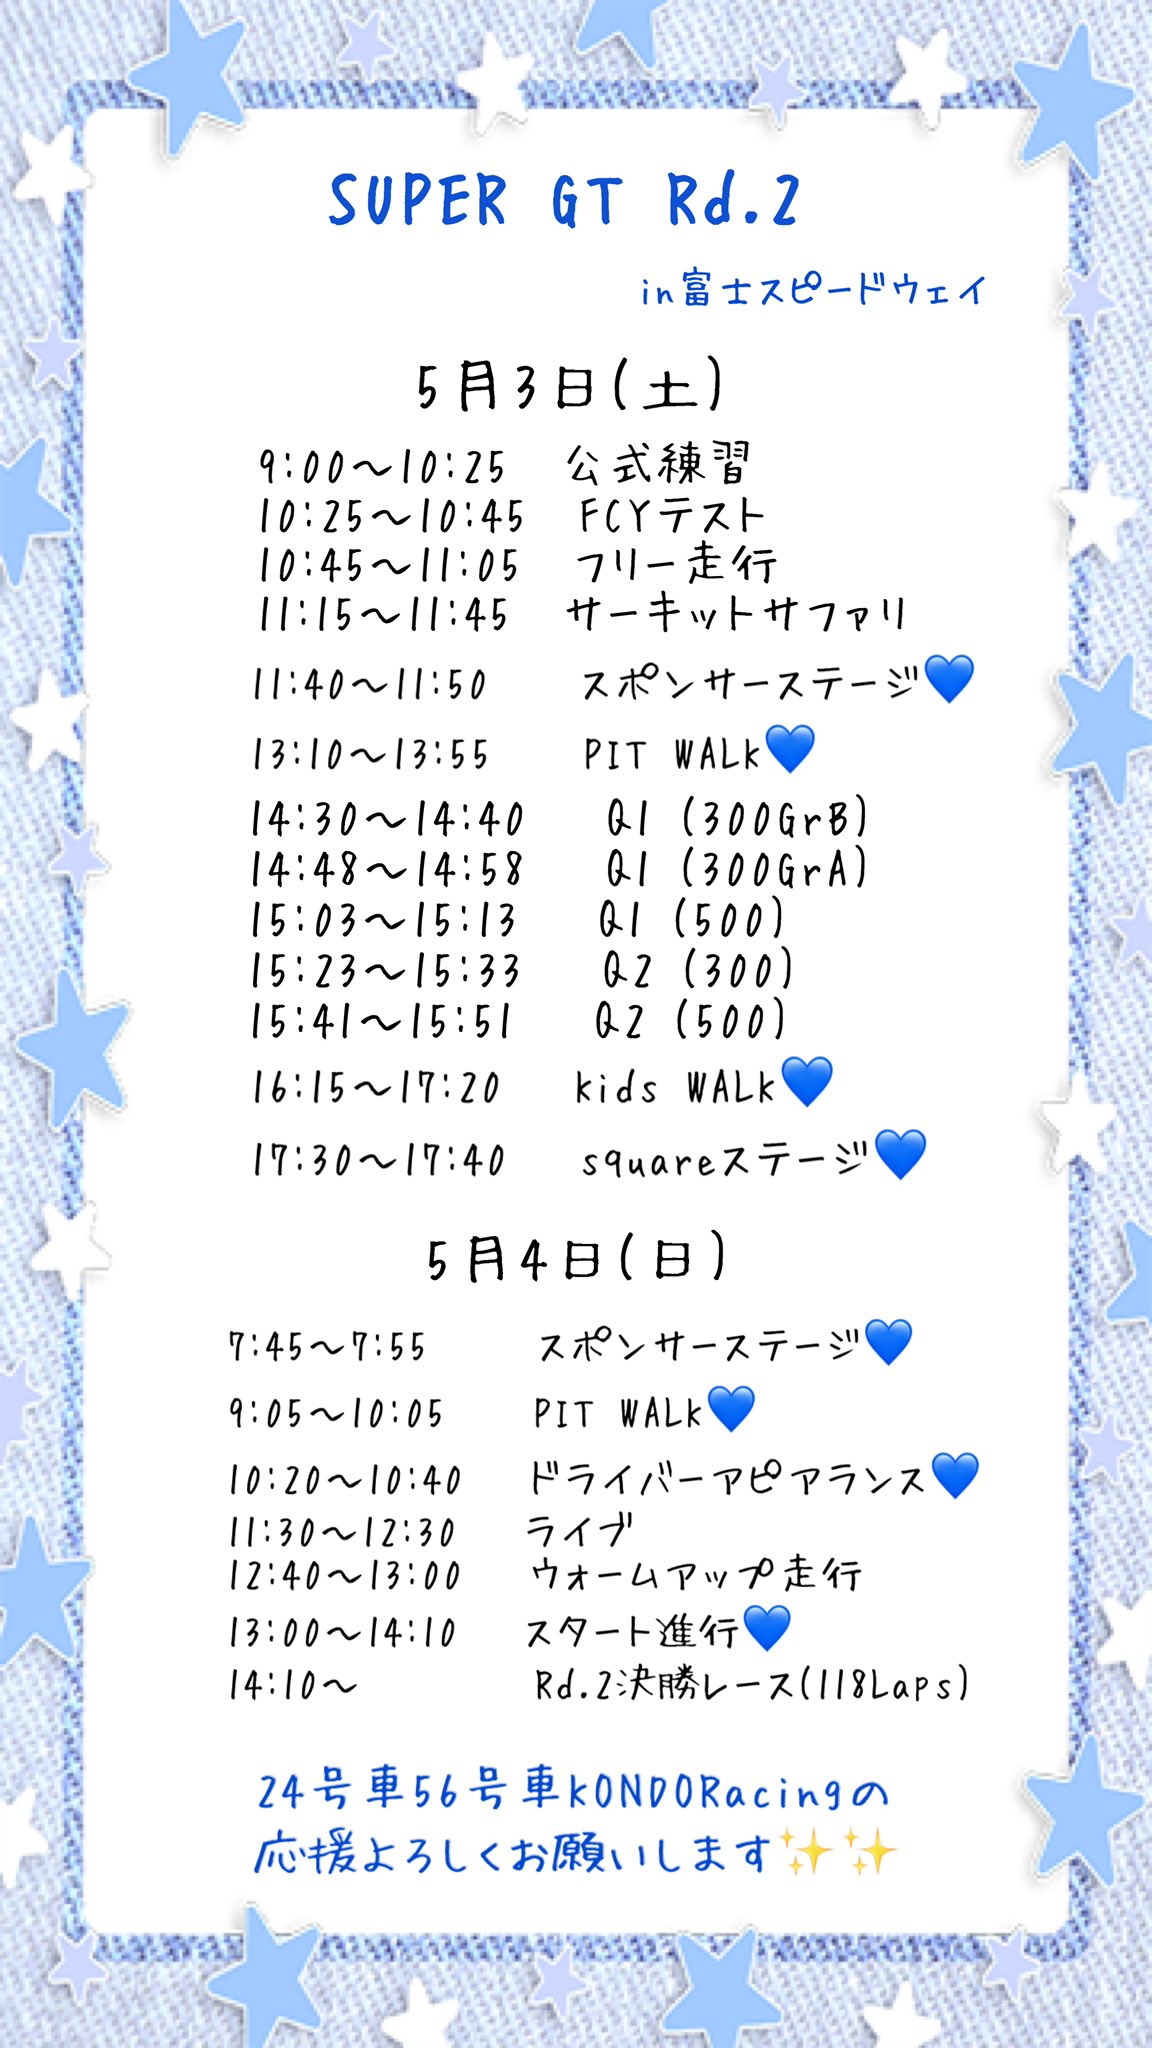 SUPER GT Rd.2
in富士スピードウェイ
5月3日(土)
9:00～10:25 公式練習
10:25～10:45 FCYテスト
10:45～11:05 フリー走行
11:15～11:45 サーキットサファリ
11:40～11:50 スポンサーステージ💙
13:10～13:55 PIT WALK💙
14:30～14:40 Q1 (300GrB)
14:48～14:58 Q1 (300GrA)
15:03～15:13 Q1 (500)
15:23～15:33 Q2 (300)
15:41～15:51 Q2 (500)
16:15～17:20 kids WALK💙
17:30～17:40 squareステージ💙
5月4日(日)
7:45～7:55 スポンサーステージ💙
9:05～10:05 PIT WALK💙
10:20～10:40 ドライバーアピアランス💙
11:30～12:30 ライブ
12:40～13:00 ウォームアップ走行
13:00～14:10 スタート進行💙
14:10～ Rd.2決勝レース(118Laps)
24号車56号車KONDORacingの
応援よろしくお願いします✨✨